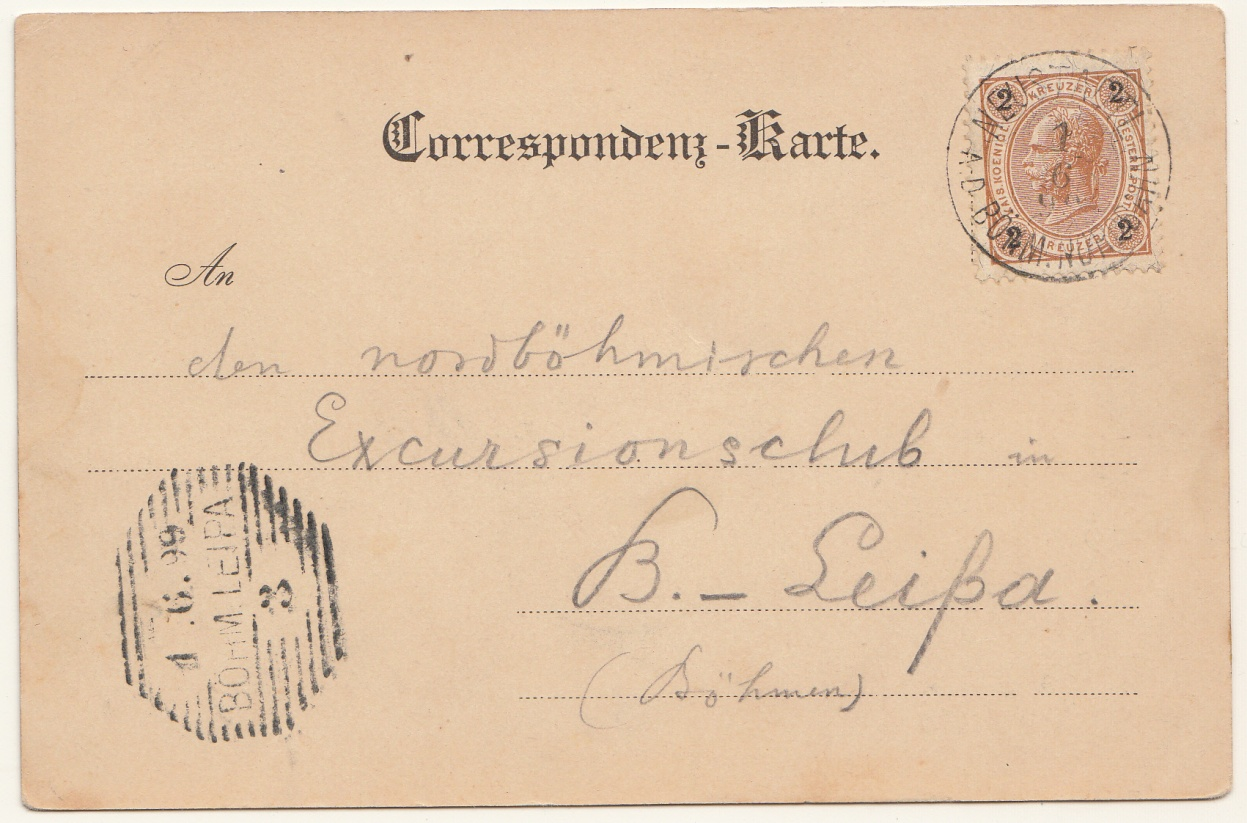 Correspondenz-Karte.
2 KREUZER 2
KAIS. KOENIGL. OESTERR. POST
2 KREUZER 2
A.D. BÖHM. NORD
1
6
An
den nordböhmischen
Excursionsclub in
B. – Leipa.
(Böhmen)
1 . 6. 99
BÖHM. LEIPA
3